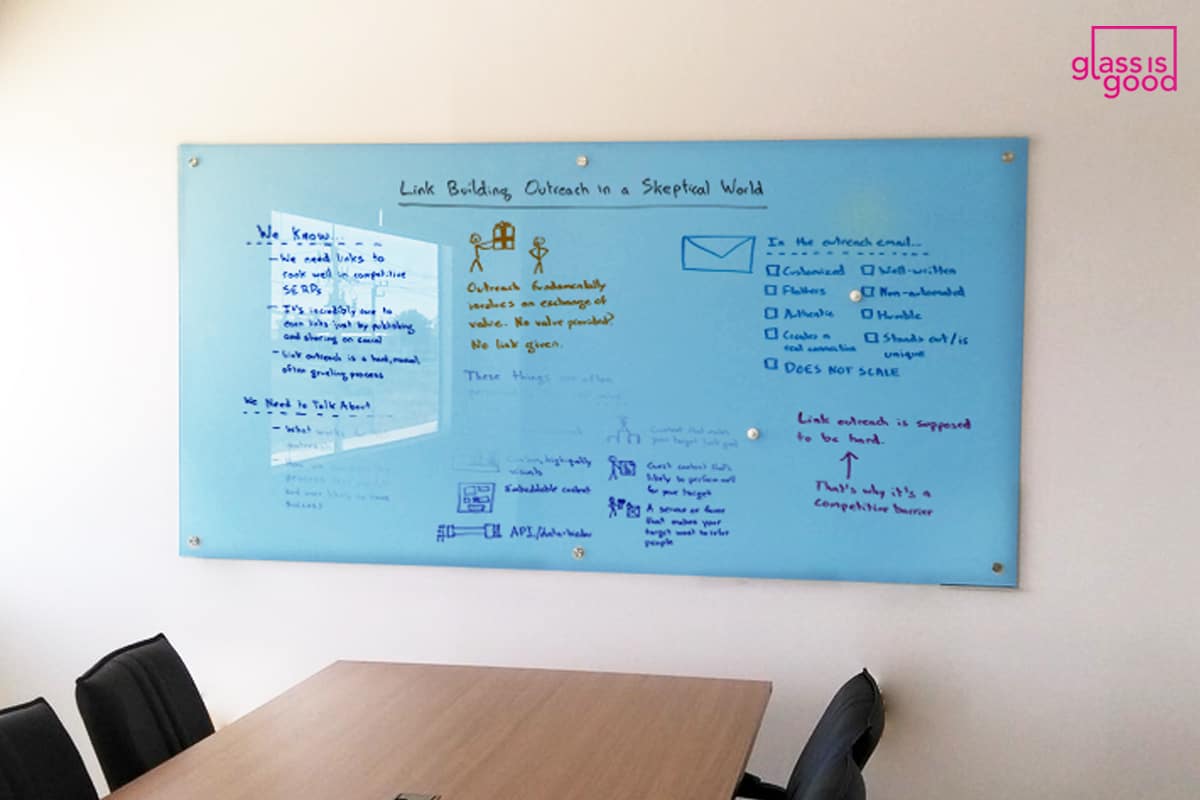 glass is
good
Link Building Outreach in a Skeptical World
We Know...
- We need links to
rank well in competitive
SERPs
- It's incredibly rare to
earn links just by publishing
and sharing on social
- Link outreach is a hard, manual,
often grueling process
We Need to Talk About
- What
process
and more likely to have
success
Outreach fundamentally
involves an exchange of
value. No value provided?
No link given.
These things are often
high-quality
visuals
Embeddable content
API/data
Content that makes
your target look good
Guest content that's
likely to perform well
for your target
A service or favor
that makes your
target want to refer
people
In the outreach email...
Customized
Well-written
Flatters
Non-automated
Authentic
Humble
Creates a
real connection
Stands out/is
unique
DOES NOT SCALE
Link outreach is supposed
to be hard.
That's why it's a
competitive barrier